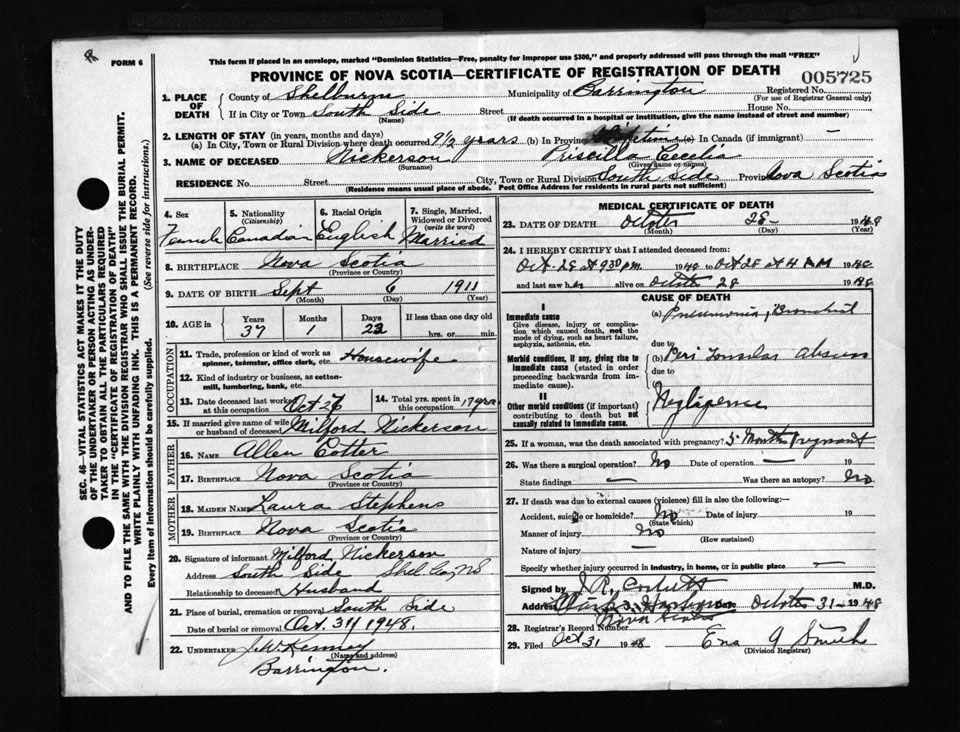 This form if placed in an envelope, marked "Dominion Statistics—Free, penalty for improper use $300," and properly addressed will pass through the mail "FREE"
FORM 6
PROVINCE OF NOVA SCOTIA—CERTIFICATE OF REGISTRATION OF DEATH
005725
1. PLACE OF DEATH
County of Shelburne Municipality of Barrington Registered No.
(For use of Registrar General only)
If in City or Town South Side Street House No.
(Name) (If death occurred in a hospital or institution, give the name instead of street and number)
2. LENGTH OF STAY (in years, months and days)
(a) In City, Town or Rural Division where death occurred 9½ years (b) In Province Lifetime (c) In Canada (if immigrant) —
3. NAME OF DECEASED Nickerson Priscilla Cecelia
(Surname) (Given name or names)
RESIDENCE No. Street City, Town or Rural Division South Side Province Nova Scotia
(Residence means usual place of abode. Post Office Address for residents in rural parts not sufficient)
4. Sex Female
5. Nationality (Citizenship) Canadian
6. Racial Origin English
7. Single, Married, Widowed or Divorced (write the word) Married
8. BIRTHPLACE Nova Scotia
(Province or Country)
9. DATE OF BIRTH Sept 6 1911
(Month) (Day) (Year)
10. AGE in Years Months Days If less than one day old
37 1 22 hrs. or min.
OCCUPATION
11. Trade, profession or kind of work as spinner, teamster, office clerk, etc. Housewife
12. Kind of industry or business, as cotton-mill, lumbering, bank, etc.
13. Date deceased last worked at this occupation Oct 26
14. Total yrs. spent in this occupation 17 yrs
15. If married give name of wife or husband of deceased Milford Nickerson
FATHER
16. NAME Allen Cotter
17. BIRTHPLACE Nova Scotia
(Province or Country)
MOTHER
18. MAIDEN NAME Laura Stephens
19. BIRTHPLACE Nova Scotia
(Province or Country)
20. Signature of informant Milford Nickerson
Address South Side Shel Co., N.S.
Relationship to deceased Husband
21. Place of burial, cremation or removal South Side
Date of burial or removal Oct. 31 1948.
22. UNDERTAKER J. W. Kenney
(Name and address)
Barrington.
MEDICAL CERTIFICATE OF DEATH
23. DATE OF DEATH October 28 1948
(Month) (Day) (Year)
24. I HEREBY CERTIFY that I attended deceased from:
Oct. 28 at 930 pm. 1948 to Oct 28 at 11 PM 1948
and last saw her alive on October 28 1948
CAUSE OF DEATH
I
Immediate cause
Give disease, injury or complication which caused death, not the mode of dying, such as heart failure, asphyxia, asthenia, etc.
(a) Pneumonia, Bronchial
due to
Morbid conditions, if any, giving rise to immediate cause (stated in order proceeding backwards from immediate cause).
(b) Peri Tonsilar abscess
due to
II
Other morbid conditions (if important) contributing to death but not causally related to immediate cause.
Negligence
25. If a woman, was the death associated with pregnancy? 5 Months pregnant
26. Was there a surgical operation? No Date of operation — 19
State findings — Was there an autopsy? No
27. If death was due to external causes (violence) fill in also the following:—
Accident, suicide or homicide? No Date of injury 19
(State which)
Manner of injury No
(How sustained)
Nature of injury —
Specify whether injury occurred in industry, in home, or in public place —
Signed by M.D.
Address Date October 31 1948
Nova Scotia
28. Registrar's Record Number
29. Filed Oct 31 1948 Ena A Smith
(Division Registrar)
SEC. 46—VITAL STATISTICS ACT MAKES IT THE DUTY OF THE UNDERTAKER OR PERSON ACTING AS UNDERTAKER TO OBTAIN ALL THE PARTICULARS REQUIRED IN THE "CERTIFICATE OF REGISTRATION OF DEATH" AND TO FILE THE SAME WITH THE DIVISION REGISTRAR WHO SHALL ISSUE THE BURIAL PERMIT.
WRITE PLAINLY WITH UNFADING INK. THIS IS A PERMANENT RECORD.
Every item of information should be carefully supplied. (See reverse side for instructions.)